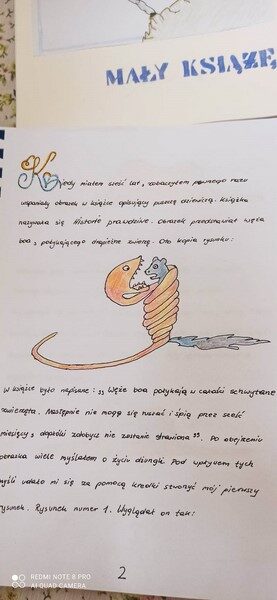 MAŁY KSIĄŻĘ
Kiedy miałem sześć lat, zobaczyłem pewnego razu
wspaniały obrazek w książce opisującej puszczę dziewiczą. Książka
nazywała się Historie prawdziwe. Obrazek przedstawiał węża
boa, połykającego drapieżne zwierzę. Oto kopia rysunku:
W książce było napisane: „Węże boa połykają w całości schwytane
zwierzęta. Następnie nie mogą się ruszać i śpią przez sześć
miesięcy, dopóki zdobycz nie zostanie strawiona". Po obejrzeniu
obrazka wiele myślałem o życiu dżungli. Pod wpływem tych
myśli udało mi się za pomocą kredki stworzyć mój pierwszy
rysunek. Rysunek numer 1. Wyglądał on tak:
2
REDMI NOTE 8 PRO
AI QUAD CAMERA